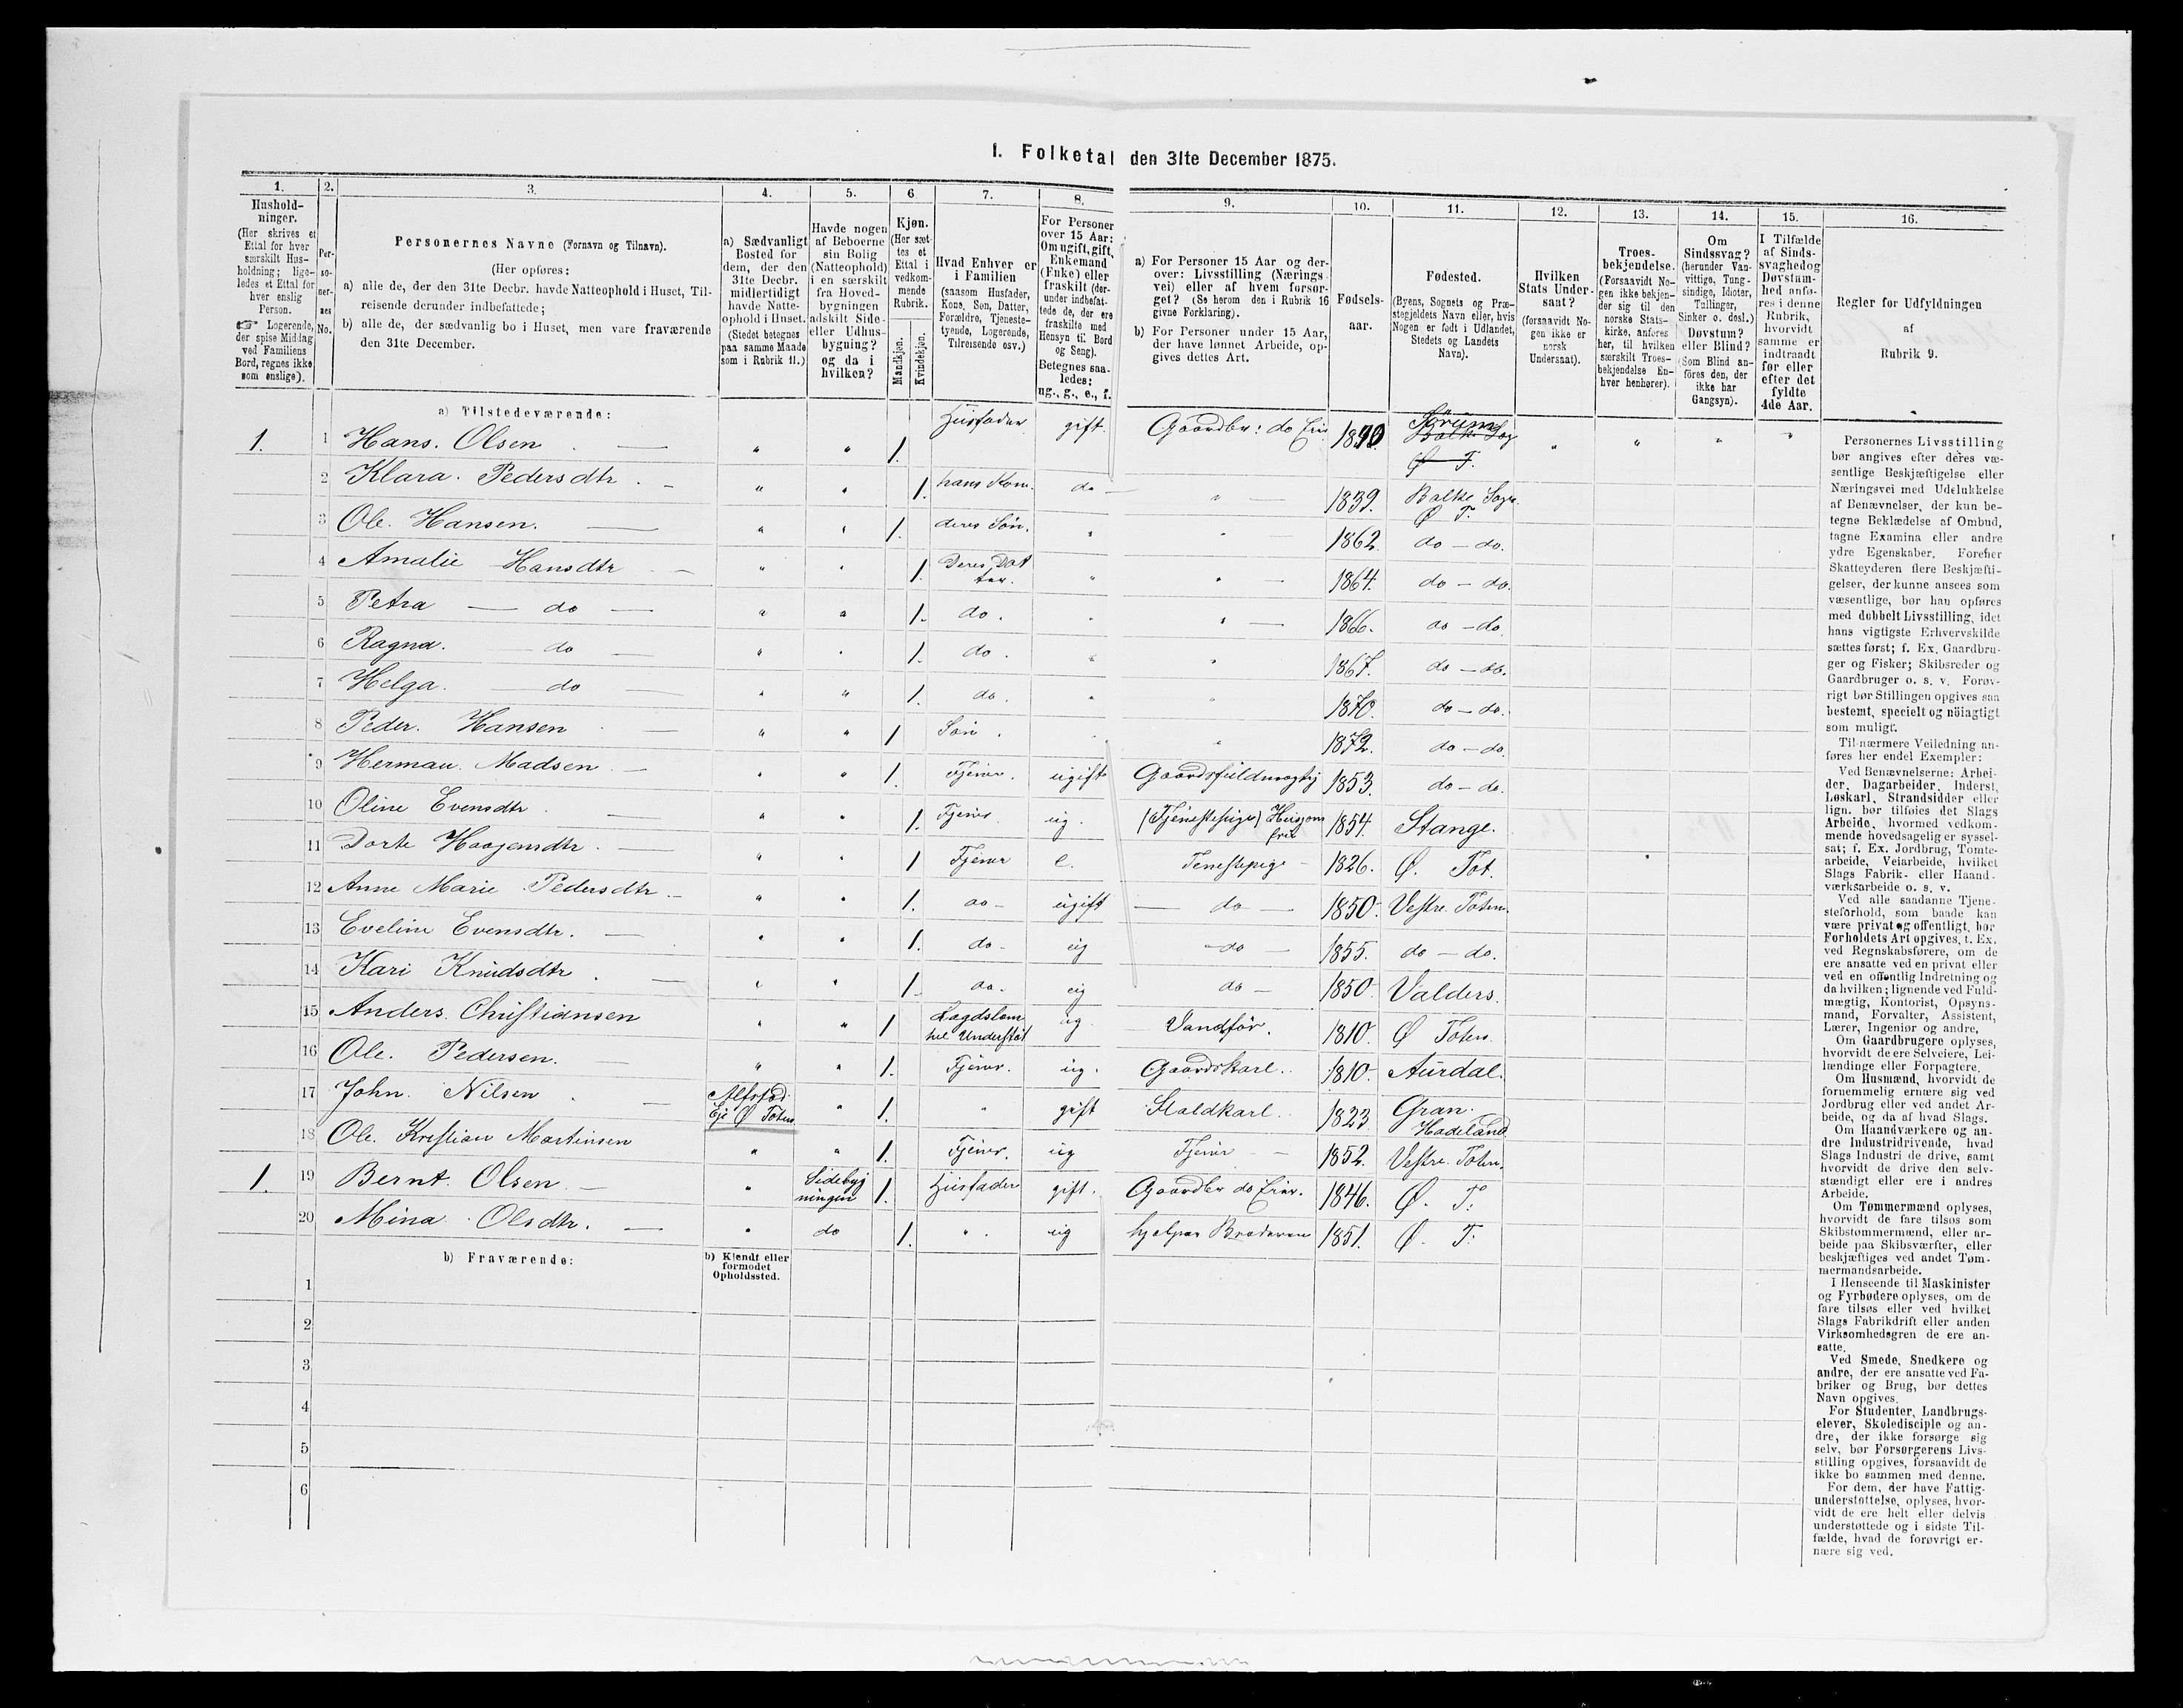 1. Folketal den 31te December 1875.
1. 2. 3. 4. 5. 6 7. 8. 9. 10. 11. 12. 13. 14. 15. 16.
Hushold-
ninger.
(Her skrives et
Ettal for hver
særskilt Hus-
holdning; lige-
ledes et Ettal for
hver enslig
Person.
☞ Logerende,
der spise Middag
ved Familiens
Bord, regnes ikke
som enslige).
Per-
so-
ner-
nes
No.
Personernes Navne (Fornavn og Tilnavn).
(Her opføres:
a) alle de, der den 31te Decbr. havde Natteophold i Huset, Til-
reisende derunder indbefattede;
b) alle de, der sædvanlig bo i Huset, men vare fraværende
den 31te December.
a) Sædvanligt
Bosted for
dem, der den
31te Decbr.
midlertidigt
havde Natte-
ophold i Huset.
(Stedet betegnes
paa samme Maade
som i Rubrik 11.)
Havde nogen
af Beboerne
sin Bolig
(Natteophold)
i en særskilt
fra Hoved-
bygningen
adskilt Side-
eller Udhus-
bygning?
og da i
hvilken?
Kjøn.
(Her sæt-
tes et
Ettal i
vedkom-
mende
Rubrik.
Mandkjøn.
Kvindekjøn.
Hvad Enhver er
i Familien
(saasom Husfader,
Kone, Søn, Datter,
Forældre, Tjeneste-
tyende, Logerende,
Tilreisende osv.)
For Personer
over 15 Aar:
Om ugift, gift,
Enkemand
(Enke) eller
fraskilt (der-
under indbefat-
tede de, der ere
fraskilte med
Hensyn til Bord
og Seng).
Betegnes saa-
ledes:
ug., g., e., f.
a) For Personer 15 Aar og der-
over: Livsstilling (Nærings-
vei) eller af hvem forsør-
get? (Se herom den i Rubrik 16
givne Forklaring).
b) For Personer under 15 Aar,
der have lønnet Arbeide, op-
gives dettes Art.
Fødsels-
aar.
Fødested.
(Byens, Sognets og Præ-
stegjeldets Navn eller, hvis
Nogen er født i Udlandet,
Stedets og Landets
Navn).
Hvilken
Stats Under-
saat?
(forsaavidt No-
gen ikke er
norsk
Undersaat).
Troes-
bekjendelse.
(Forsaavidt No-
gen ikke bekjen-
der sig til den
norske Stats-
kirke, anføres
her, til hvilken
særskilt Troes-
bekjendelse En-
hver henhører).
Om
Sindssvag?
(herunder Van-
vittige, Tung-
sindige, Idioter,
Tullinger,
Sinker o. desl.)
Døvstum?
eller Blind?
(Som Blind an-
føres den, der
ikke har
Gangsyn).
I Tilfælde
af Sinds-
svaghed og
Døvstum-
hed anfø-
res i denne
Rubrik,
hvorvidt
samme er
indtraadt
før eller
efter det
fyldte
4de Aar.
Regler for Udfyldningen
af
Rubrik 9.
a) Tilstedeværende:
1. 1 Hans. Olsen — " " 1. Husfader gift. Gaardbr: do Eier 1840. Sørum Balke Sog Ø T. " " " "
2 Klara. Pedersdtr. — " " 1. hans Kone. do — " — 1839. Balke Sogn. Ø T.
3 Ole. Hansen. — " " 1. deres Søn. " " — 1862. do — do.
4 Amalie Hansdtr — " " 1. Deres Dat ter. " " — 1864. do — do.
5 Petra — do — " " 1. do. " " — 1866. do — do.
6 Ragna. — do — " " 1. do. " " 1867. do — do.
7 Helga. — do — " " 1. do. " " 1870. do — do.
8 Peder. Hansen — " " 1 Søn. " " 1872. do — do
9 Herman. Madsen — " " 1. Tjener. ugift Gaardsfuldmægtig 1853. do — do.
10 Oline Evensdtr. — " " 1. Tjener. ug. (Tjenestepige) 1854. Stange.
11 Dorte Haagensdtr. — " " 1 Tjener e. Tenestepige — 1826. Ø. Tot.
12 Anne Marie Pedersdtr. — " " 1. do — ugift — do — 1850. Vestre. Toten.
13 Eveline Evensdtr. — " " 1. do — ug — do — 1855. do — do.
14 Kari Knudsdtr. — " " 1. do. ug do — 1850. Valders.
15 Anders. Christiansen " " 1 Lægdslem ug. Vandför. 1810. Ø Toten.
16 Ole. Pedersen. — " " 1. Tjener. ug. Gaardskarl. 1810. Aurdal.
17 John. Nilsen — Alfstad Eje Ø Toten " 1. " gift Staldkarl. 1823 Gran. Hadeland
18 Ole. Kristian Martinsen " " 1. Tjener. ug Tjener — 1852. Vestre. Toten.
1. 19 Bernt. Olsen — " Sidebyg ningen 1. Husfader gift. Gaardbr do Eier. 1846. Ø. T:
20 Mina Olsdtr. — " do 1. " ug hjælper Broderen 1851. Ø. T:
b) Fraværende:
b) Kjendt eller
formodet
Opholdssted.
1
2
3
4
5
6
Personernes Livsstilling
bør angives efter deres væ-
sentlige Beskjæftigelse eller
Næringsvei med Udelukkelse
af Benævnelser, der kun be-
tegne Beklædelse af Ombud,
tagne Examina eller andre
ydre Egenskaber. Forener
Skatteyderen flere Beskjæfti-
gelser, der kunne ansees som
væsentlige, bør han opføres
med dobbelt Livsstilling, idet
hans vigtigste Erhvervskilde
sættes først; f. Ex. Gaardbru-
ger og Fisker; Skibsreder og
Gaardbruger o. s. v. Forøv-
rigt bør Stillingen opgives saa
bestemt, specielt og nöiagtigt
som muligt.
Til nærmere Veiledning an-
føres her endel Exempler:
Ved Benævnelserne: Arbei-
der, Dagarbeider, Inderst,
Løskarl, Strandsidder eller
lign. bør tilføies det Slags
Arbeide, hvormed vedkom-
mende hovedsagelig er syssel-
sat; f. Ex. Jordbrug, Tomte-
arbeide, Veiarbeide, hvilket
Slags Fabrik- eller Haand-
værksarbeide o. s. v.
Ved alle saadanne Tjene-
steforhold, som baade kan
være privat og offentligt, bør
Forholdets Art opgives, t. Ex.
ved Regnskabsførere, om de
ere ansatte ved en privat eller
ved en offentlig Indretning og
da hvilken; lignende ved Fuld-
mægtig, Kontorist, Opsyns-
mand, Forvalter, Assistent,
Lærer, Ingeniør og andre.
Om Gaardbrugere oplyses,
hvorvidt de ere Selveiere, Lei-
lændinge eller Forpagtere.
Om Husmænd, hvorvidt de
fornemmelig ernære sig ved
Jordbrug eller ved andet Ar-
beide, og da af hvad Slags.
Om Haandværkere og an-
dre Industridrivende, hvad
Slags Industri de drive, samt
hvorvidt de drive den selv-
stændigt eller ere i andres
Arbeide.
Om Tømmermænd oplyses,
hvorvidt de fare tilsøs som
Skibstømmermænd, eller ar-
beide paa Skibsværfter, eller
beskjæftiges ved andet Tøm-
mermandsarbeide.
I Henseende til Maskinister
og Fyrbødere oplyses, om de
fare tilsøs eller ved hvilket
Slags Fabrikdrift eller anden
Virksomhedsgren de ere an-
satte.
Ved Smede, Snedkere og
andre, der ere ansatte ved Fa-
briker og Brug, bør dettes
Navn opgives.
For Studenter, Landbrugs-
elever, Skoledisciple og an-
dre, der ikke forsørge sig
selv, bør Forsørgerens Livs-
stilling opgives, forsaavidt de
ikke bo sammen med denne.
For dem, der have Fattig-
understøttelse, oplyses, hvor-
vidt de ere helt eller delvis
understøttede og i sidste Til-
fælde, hvad de forøvrigt er-
nære sig ved.